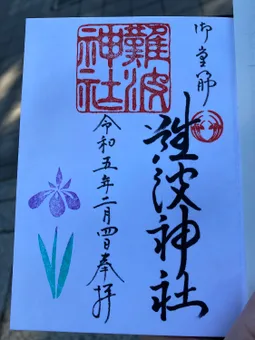 御堂筋
難波神社
難波神社
令和五年二月四日奉拝